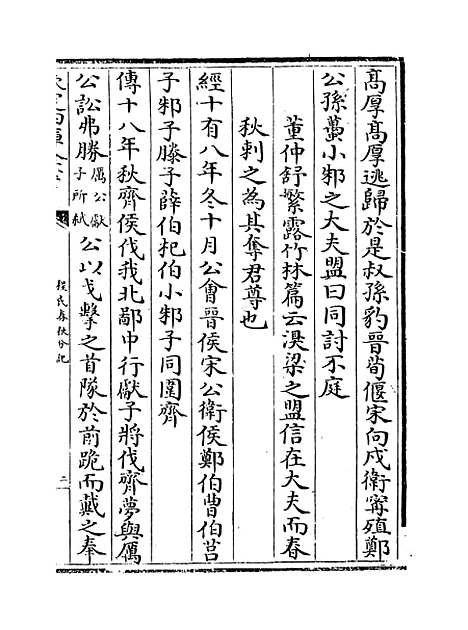 高厚高厚逃歸於是叔孫豹晉荀偃宋向戌衛甯殖鄭
公孫蠆小邾之大夫盟曰同討不庭
董仲舒繁露竹林篇云溴梁之盟信在大夫而春
秋刺之為其奪君尊也
經十有八年冬十月公會晉侯宋公衛侯鄭伯曹伯莒
子邾子滕子薛伯杞伯小邾子同圍齊
傳十八年秋齊侯伐我北鄙中行獻子將伐齊夢與厲
公訟弗勝厲公獻子所弑公以戈擊之首隊於前跪而戴之奉
程氏春秋分記
二